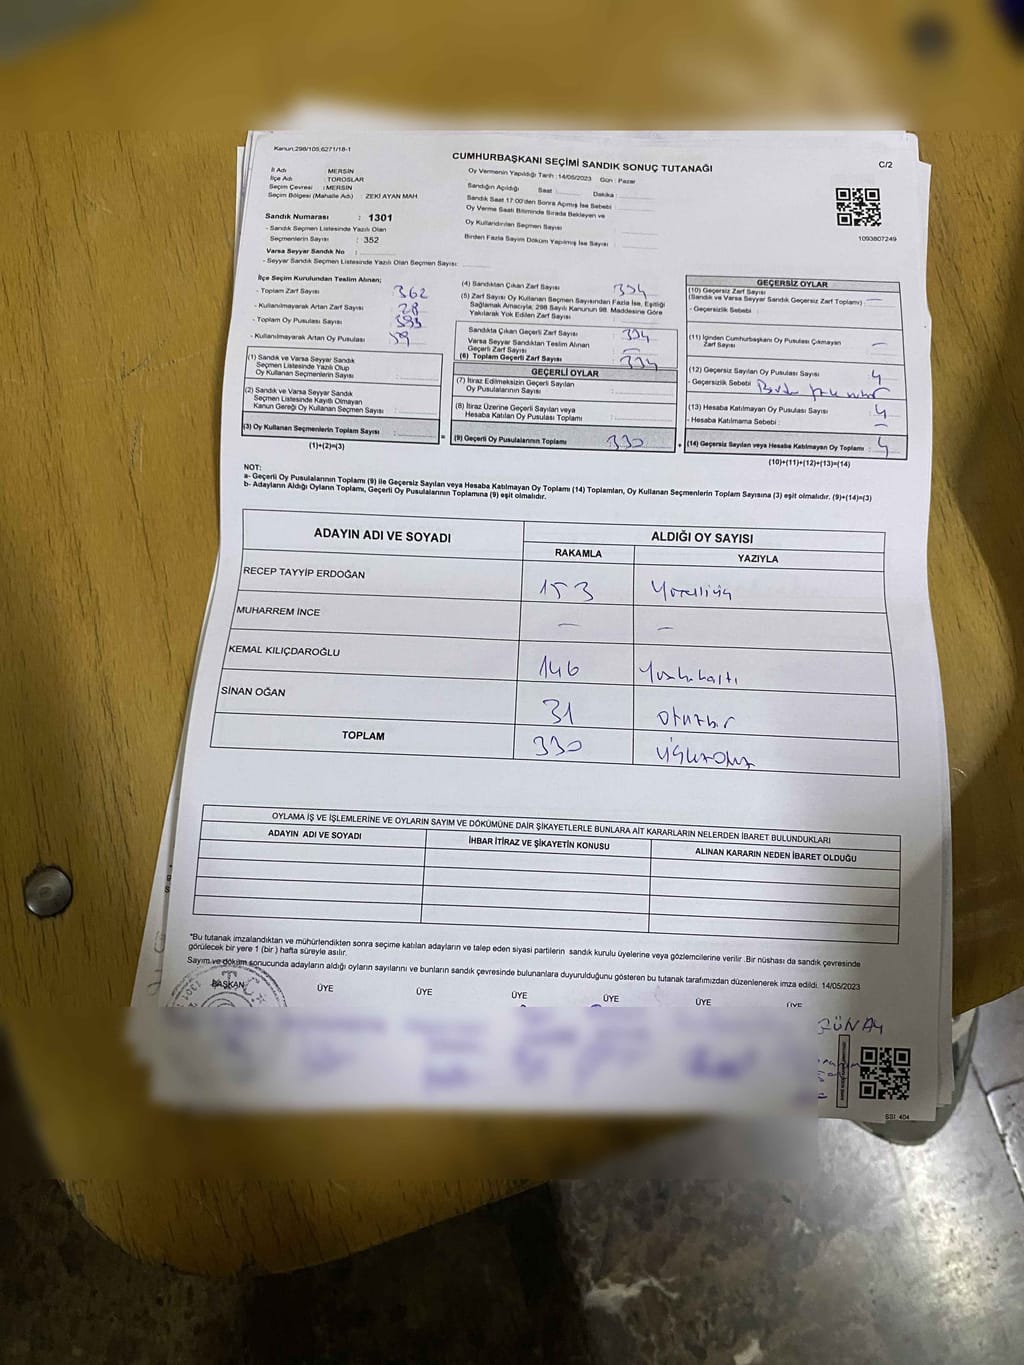 Kanun:298/105;6271/18-1
C/2
CUMHURBAŞKANI SEÇİMİ SANDIK SONUÇ TUTANAĞI
İl Adı : MERSİN
İlçe Adı : TOROSLAR
Seçim Çevresi : MERSİN
Seçim Bölgesi (Mahalle Adı) : ZEKİ AYAN MAH
Oy Vermenin Yapıldığı Tarih : 14/05/2023 Gün : Pazar
Sandığın Açıldığı Saat : Dakika :
Sandık Saat 17:00'den Sonra Açılmış İse Sebebi :
Oy Verme Saati Bitiminde Sırada Bekleyen ve
Oy Kullandırılan Seçmen Sayısı :
Birden Fazla Sayım Döküm Yapılmış İse Sayısı :
1093807249
Sandık Numarası : 1301
- Sandık Seçmen Listesinde Yazılı Olan
Seçmenlerin Sayısı : 352
Varsa Seyyar Sandık No :
- Seyyar Sandık Seçmen Listesinde Yazılı Olan Seçmen Sayısı:
İlçe Seçim Kurulundan Teslim Alınan;
- Toplam Zarf Sayısı 362
- Kullanılmayarak Artan Zarf Sayısı 28
- Toplam Oy Pusulası Sayısı
- Kullanılmayarak Artan Oy Pusulası
(1) Sandık ve Varsa Seyyar Sandık
Seçmen Listesinde Yazılı Olup
Oy Kullanan Seçmenlerin Sayısı :
(2) Sandık ve Varsa Seyyar Sandık
Seçmen Listesinde Kayıtlı Olmayan
Kanun Gereği Oy Kullanan Seçmen Sayısı :
(3) Oy Kullanan Seçmenlerin Toplam Sayısı :
(1)+(2)=(3)
(4) Sandıktan Çıkan Zarf Sayısı : 334
(5) Zarf Sayısı Oy Kullanan Seçmen Sayısından Fazla İse, Eşitliği
Sağlamak Amacıyla; 298 Sayılı Kanunun 98. Maddesine Göre
Yakılarak Yok Edilen Zarf Sayısı :
Sandıkta Çıkan Geçerli Zarf Sayısı : 334
Varsa Seyyar Sandıktan Teslim Alınan
Geçerli Zarf Sayısı : —
(6) Toplam Geçerli Zarf Sayısı : 334
GEÇERLİ OYLAR
(7) İtiraz Edilmeksizin Geçerli Sayılan
Oy Pusulalarının Sayısı :
(8) İtiraz Üzerine Geçerli Sayılan veya
Hesaba Katılan Oy Pusulası Toplamı :
= (9) Geçerli Oy Pusulalarının Toplamı 330
GEÇERSİZ OYLAR
(10) Geçersiz Zarf Sayısı
(Sandık ve Varsa Seyyar Sandık Geçersiz Zarf Toplamı) : —
- Geçersizlik Sebebi :
(11) İçinden Cumhurbaşkanı Oy Pusulası Çıkmayan
Zarf Sayısı : —
(12) Geçersiz Sayılan Oy Pusulası Sayısı : 4
- Geçersizlik Sebebi :
(13) Hesaba Katılmayan Oy Pusulası Sayısı : 4
- Hesaba Katılmama Sebebi : —
+ (14) Geçersiz Sayılan veya Hesaba Katılmayan Oy Toplamı : 4
(10)+(11)+(12)+(13)=(14)
NOT:
a- Geçerli Oy Pusulalarının Toplamı (9) ile Geçersiz Sayılan veya Hesaba Katılmayan Oy Toplamı (14) Toplamları, Oy Kullanan Seçmenlerin Toplam Sayısına (3) eşit olmalıdır. (9)+(14)=(3)
b- Adayların Aldığı Oyların Toplamı, Geçerli Oy Pusulalarının Toplamına (9) eşit olmalıdır.
ADAYIN ADI VE SOYADI ALDIĞI OY SAYISI
RAKAMLA YAZIYLA
RECEP TAYYİP ERDOĞAN 153 Yüzelliüç
MUHARREM İNCE — —
KEMAL KILIÇDAROĞLU 146 Yüzkırkaltı
SİNAN OĞAN 31 otuzbir
TOPLAM 330 üçyüzotuz
OYLAMA İŞ VE İŞLEMLERİNE VE OYLARIN SAYIM VE DÖKÜMÜNE DAİR ŞİKAYETLERLE BUNLARA AİT KARARLARIN NELERDEN İBARET BULUNDUKLARI
ADAYIN ADI VE SOYADI İHBAR İTİRAZ VE ŞİKAYETİN KONUSU ALINAN KARARIN NEDEN İBARET OLDUĞU
*Bu tutanak imzalandıktan ve mühürlendikten sonra seçime katılan adayların ve talep eden siyasi partilerin sandık kurulu üyelerine veya gözlemcilerine verilir. Bir nüshası da sandık çevresinde
görülecek bir yere 1 (bir ) hafta süreyle asılır.
Sayım ve döküm sonucunda adayların aldığı oyların sayılarını ve bunların sandık çevresinde bulunanlara duyurulduğunu gösteren bu tutanak tarafımızdan düzenlenerek imza edildi. 14/05/2023
BAŞKAN ÜYE ÜYE ÜYE ÜYE ÜYE ÜYE
1301
GÜNAY
SSI_404